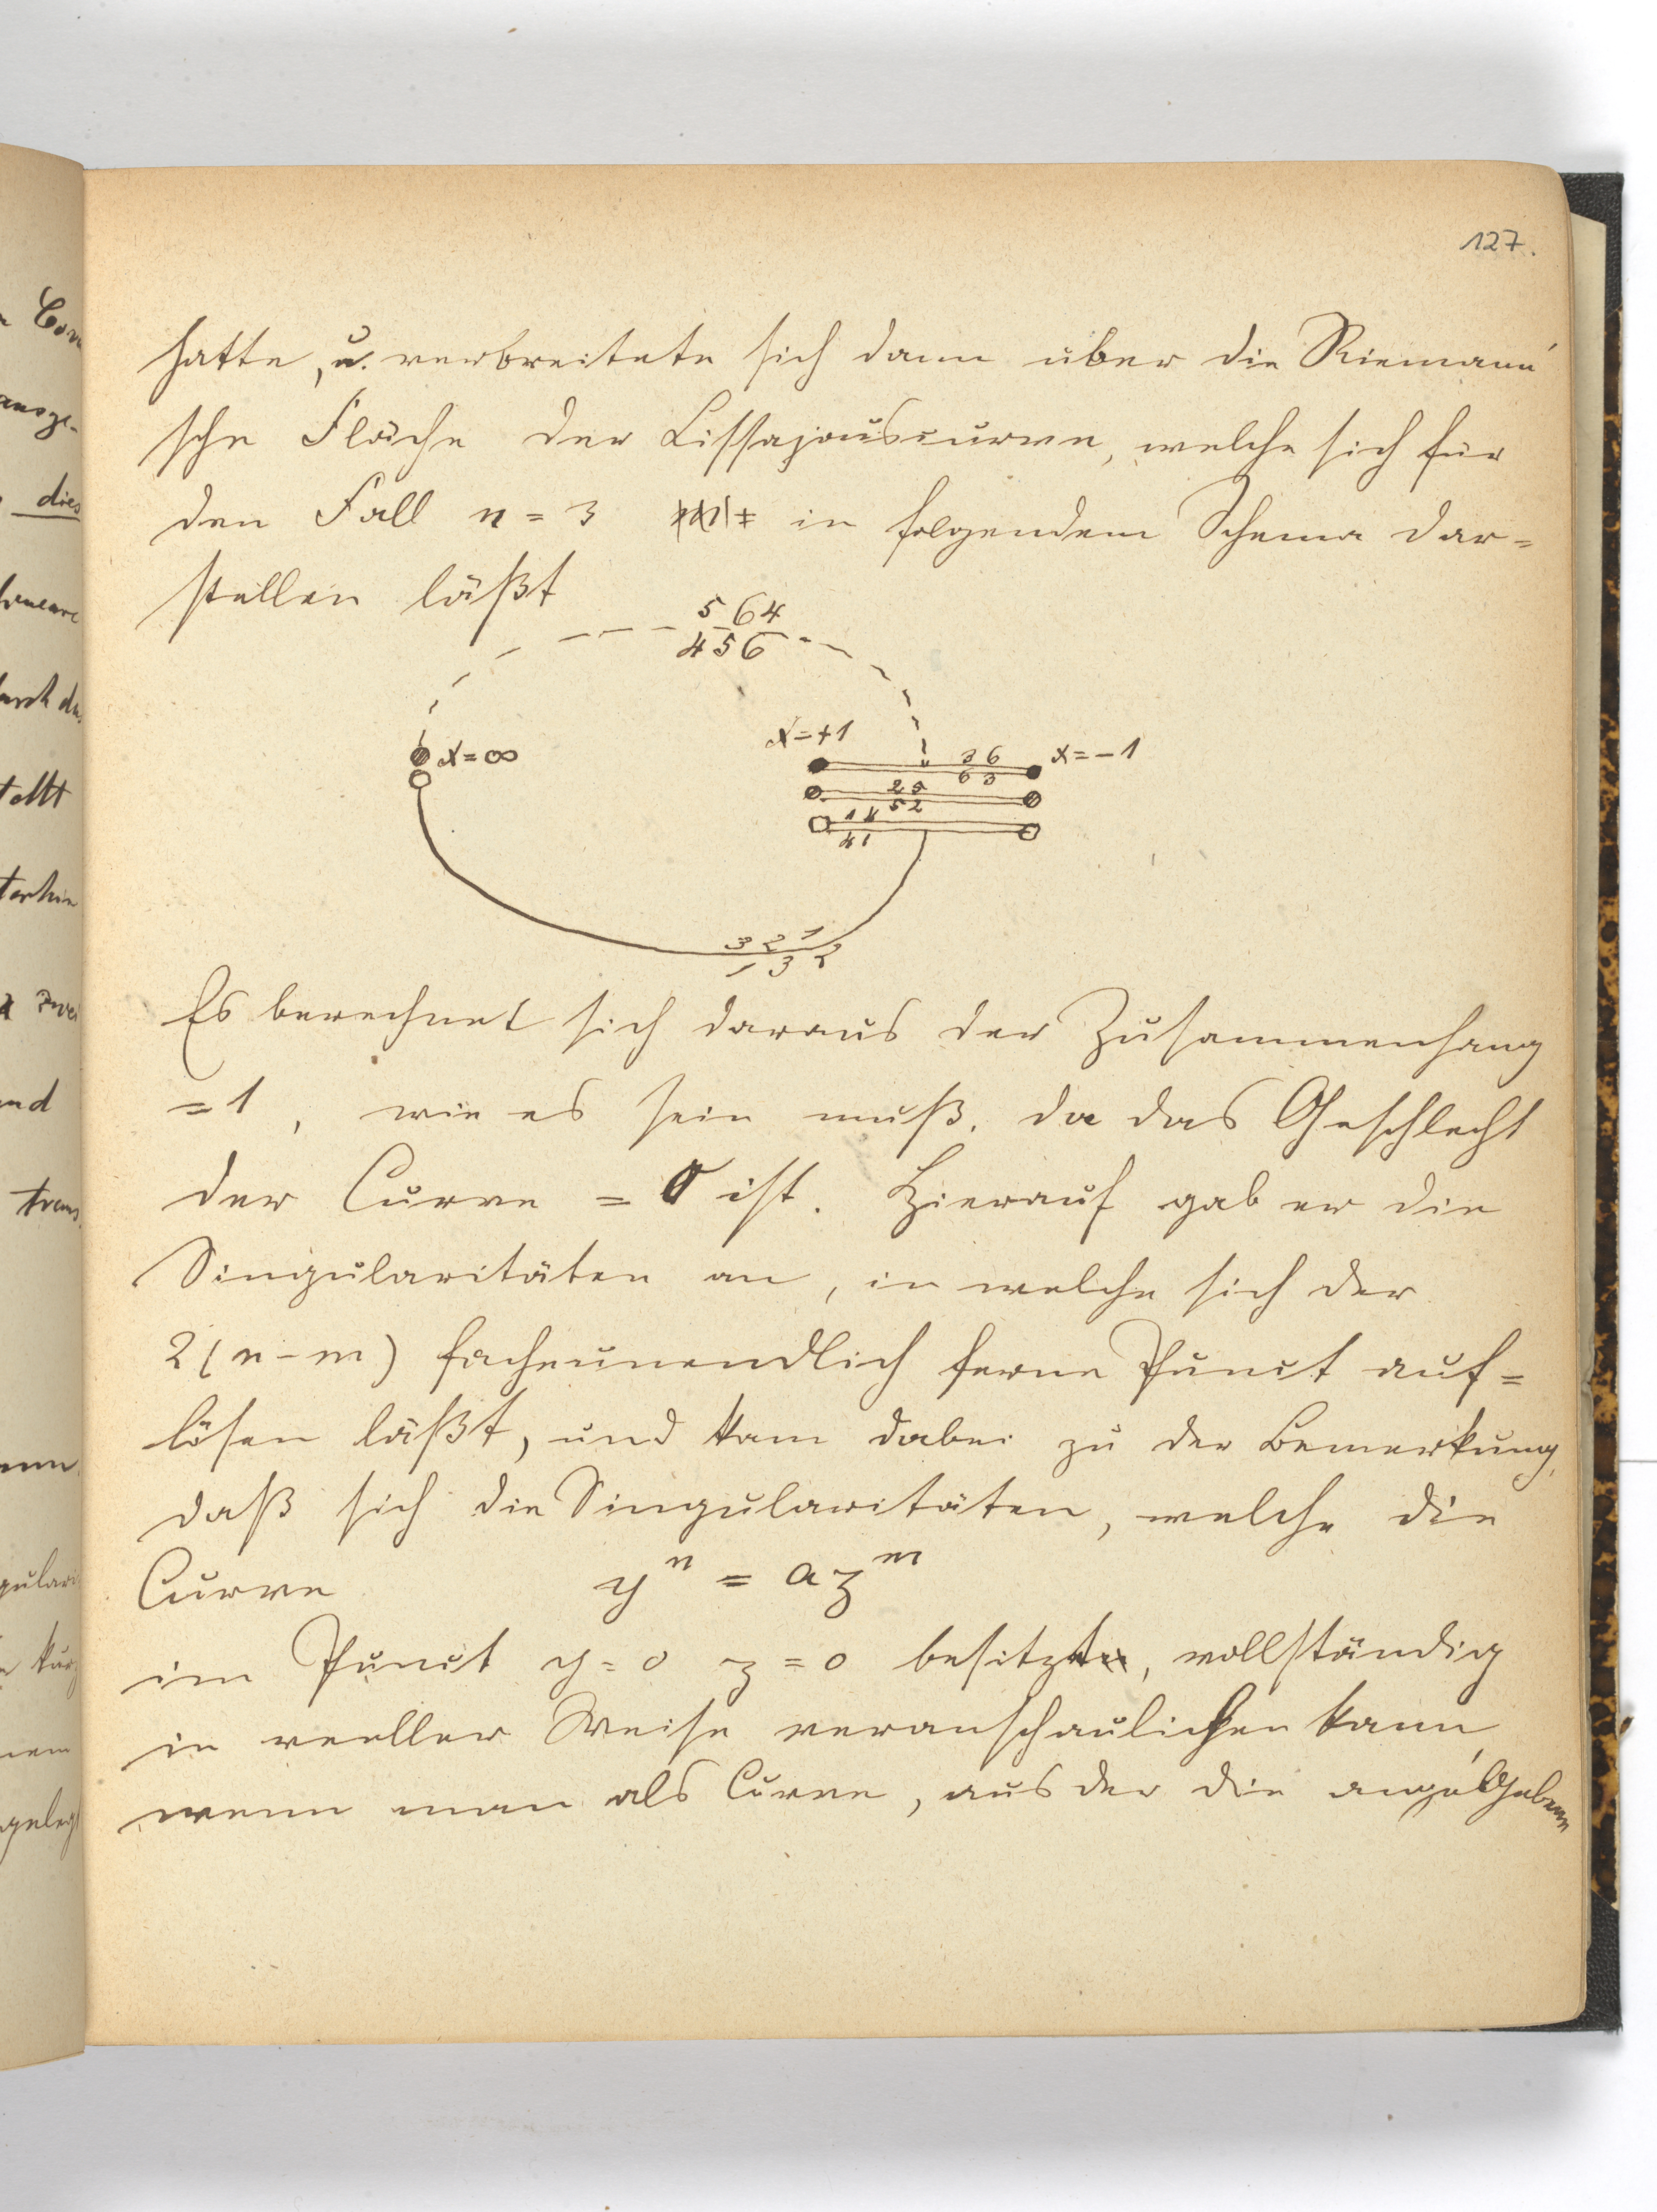 127.
hatte, u. verbreitete sich dann über die Riemann'
sche Fläche der Lissajouscurve, welche sich für
den Fall n = 3 in folgendem Schema dar=
stellen läßt
5 6 4
4 5 6
x = ∞
x = +1
x = -1
3 6
6 3
2 5
5 2
1 4
4 1
3 2 1
1 3 2
Es berechnet sich daraus der Zusammenhang
= 1, wie es sein muß, da das Geschlecht
der Curve = 0 ist. Hierauf gab er die
Singularitäten an, in welche sich der
2(n-m) fache unendlich ferne Punct auf=
lösen läßt, und kam dabei zu der Bemerkung,
daß sich die Singularitäten, welche die
Curve yⁿ = azᵐ
im Punct y = 0 z = 0 besitzt, vollständig
in reeller Weise veranschaulichen kann,
wenn man als Curve, aus der die